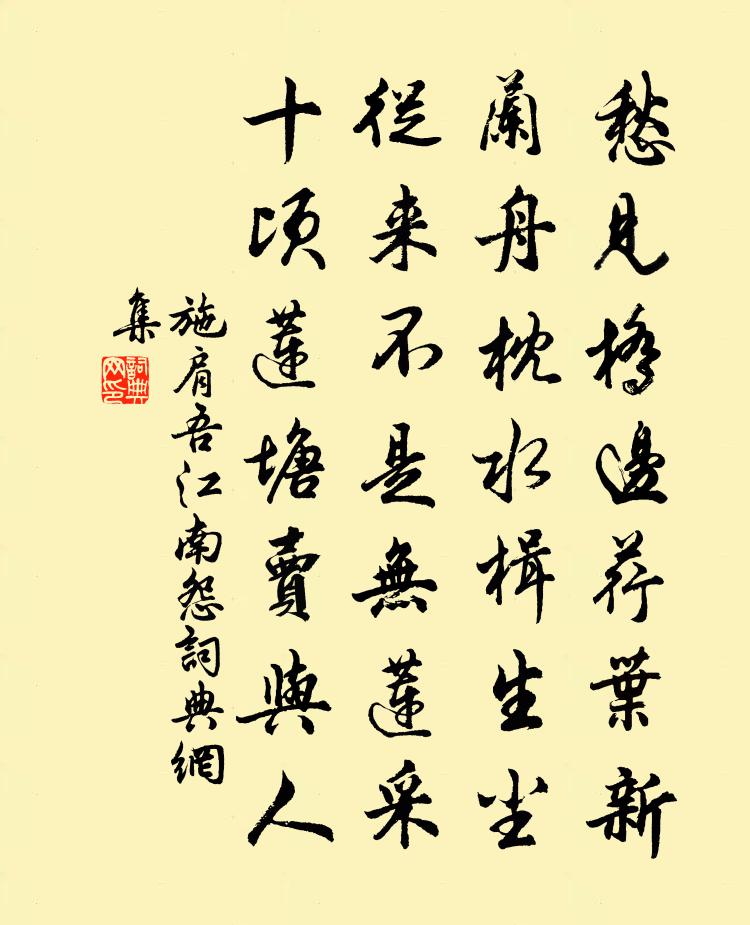 愁見橋邊荇葉新
蘭舟枕水楫生尘
從来不是無蓮采
十頃蓮塘賣與人
施肩吾江南怨詞典網
集
詞典
网印